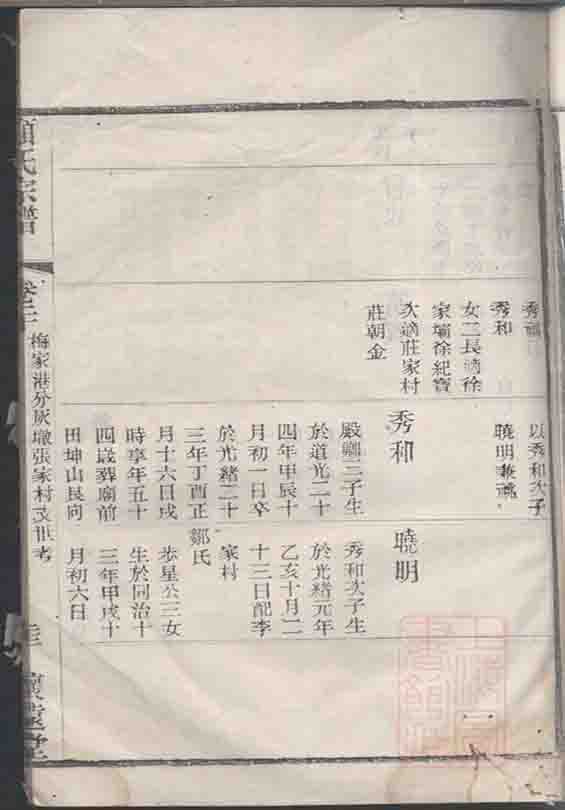 秀和
女二長適徐
家壩徐紀寶
次適莊家村
莊朝金
以秀和次子
曉明兼祧
秀和
殿颺三子生
於道光二十
四年甲辰十
月初一日卒
於光緒二十
三年丁酉正
月十六日戌
時享年五十
四歲葬廟前
田坤山艮向
曉明
秀和次子生
於光緒元年
乙亥十月二
十三日配李
家村
鄒氏
步星公三女
生於同治十
三年甲戌十
月初六日
氏宗譜
梅家港分灰墩張家村支世考